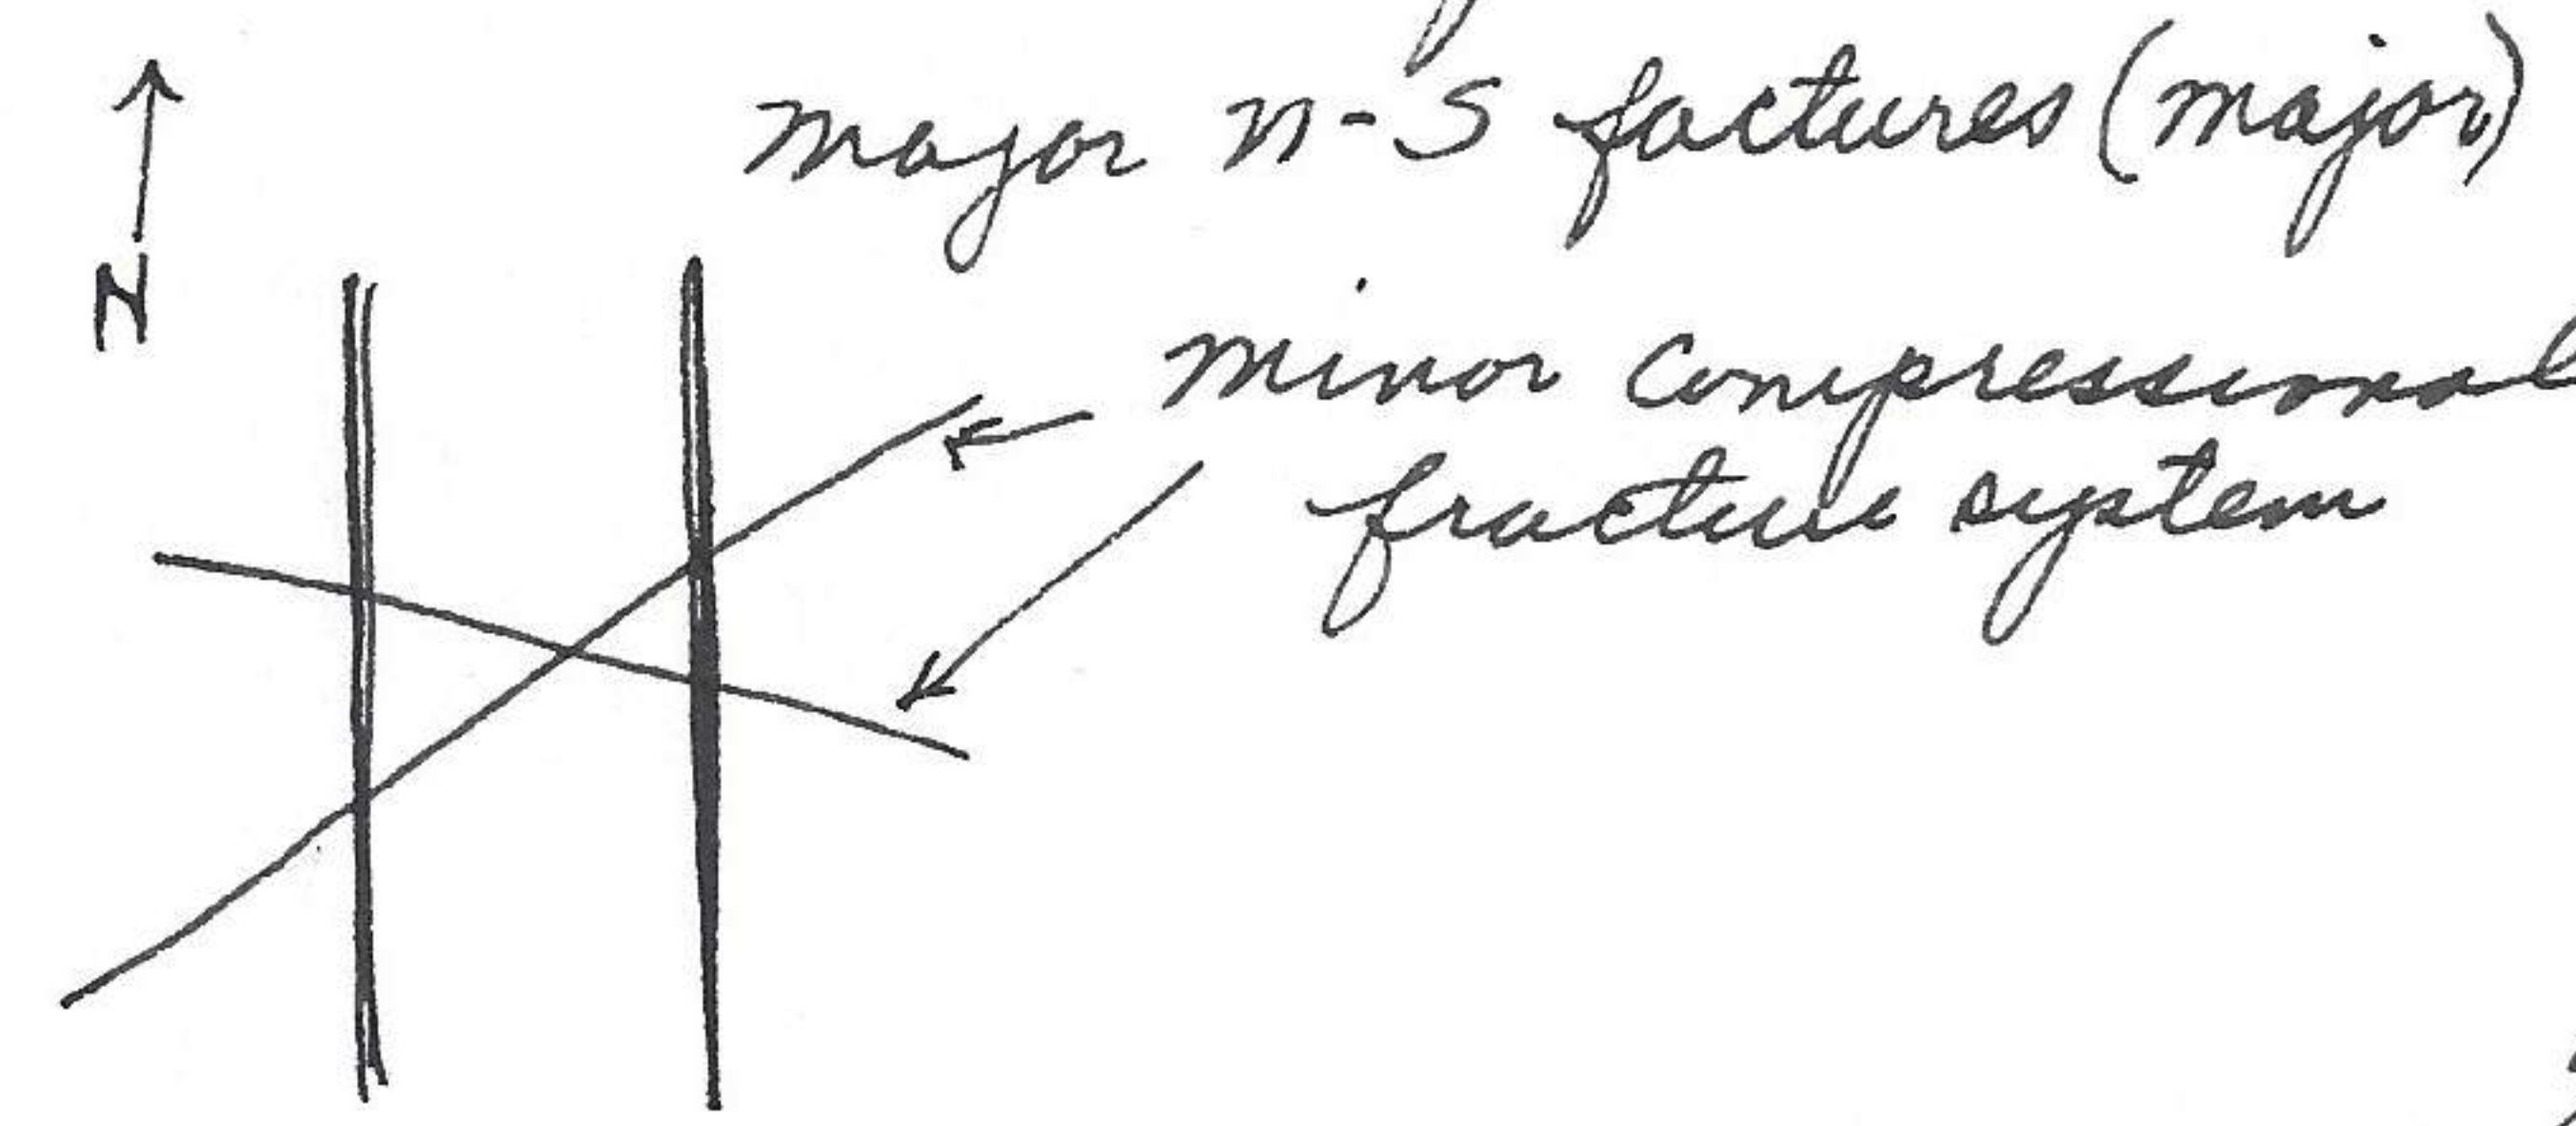 major n-S factures (major)
N
minor compressional
fracture system